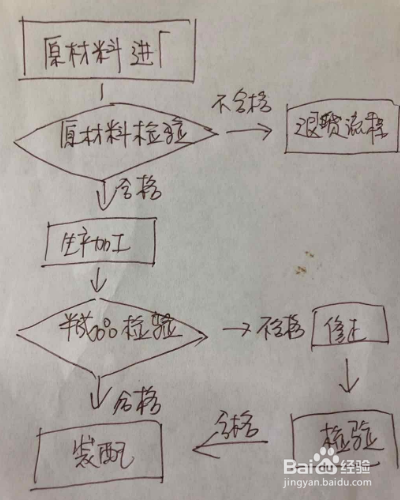 原材料进厂
不合格
原材料检验
退货流程
合格
生产加工
半成品检验
不合格
修正
合格
合格
装配
检验
Baidu经验
jingyan.baidu.com